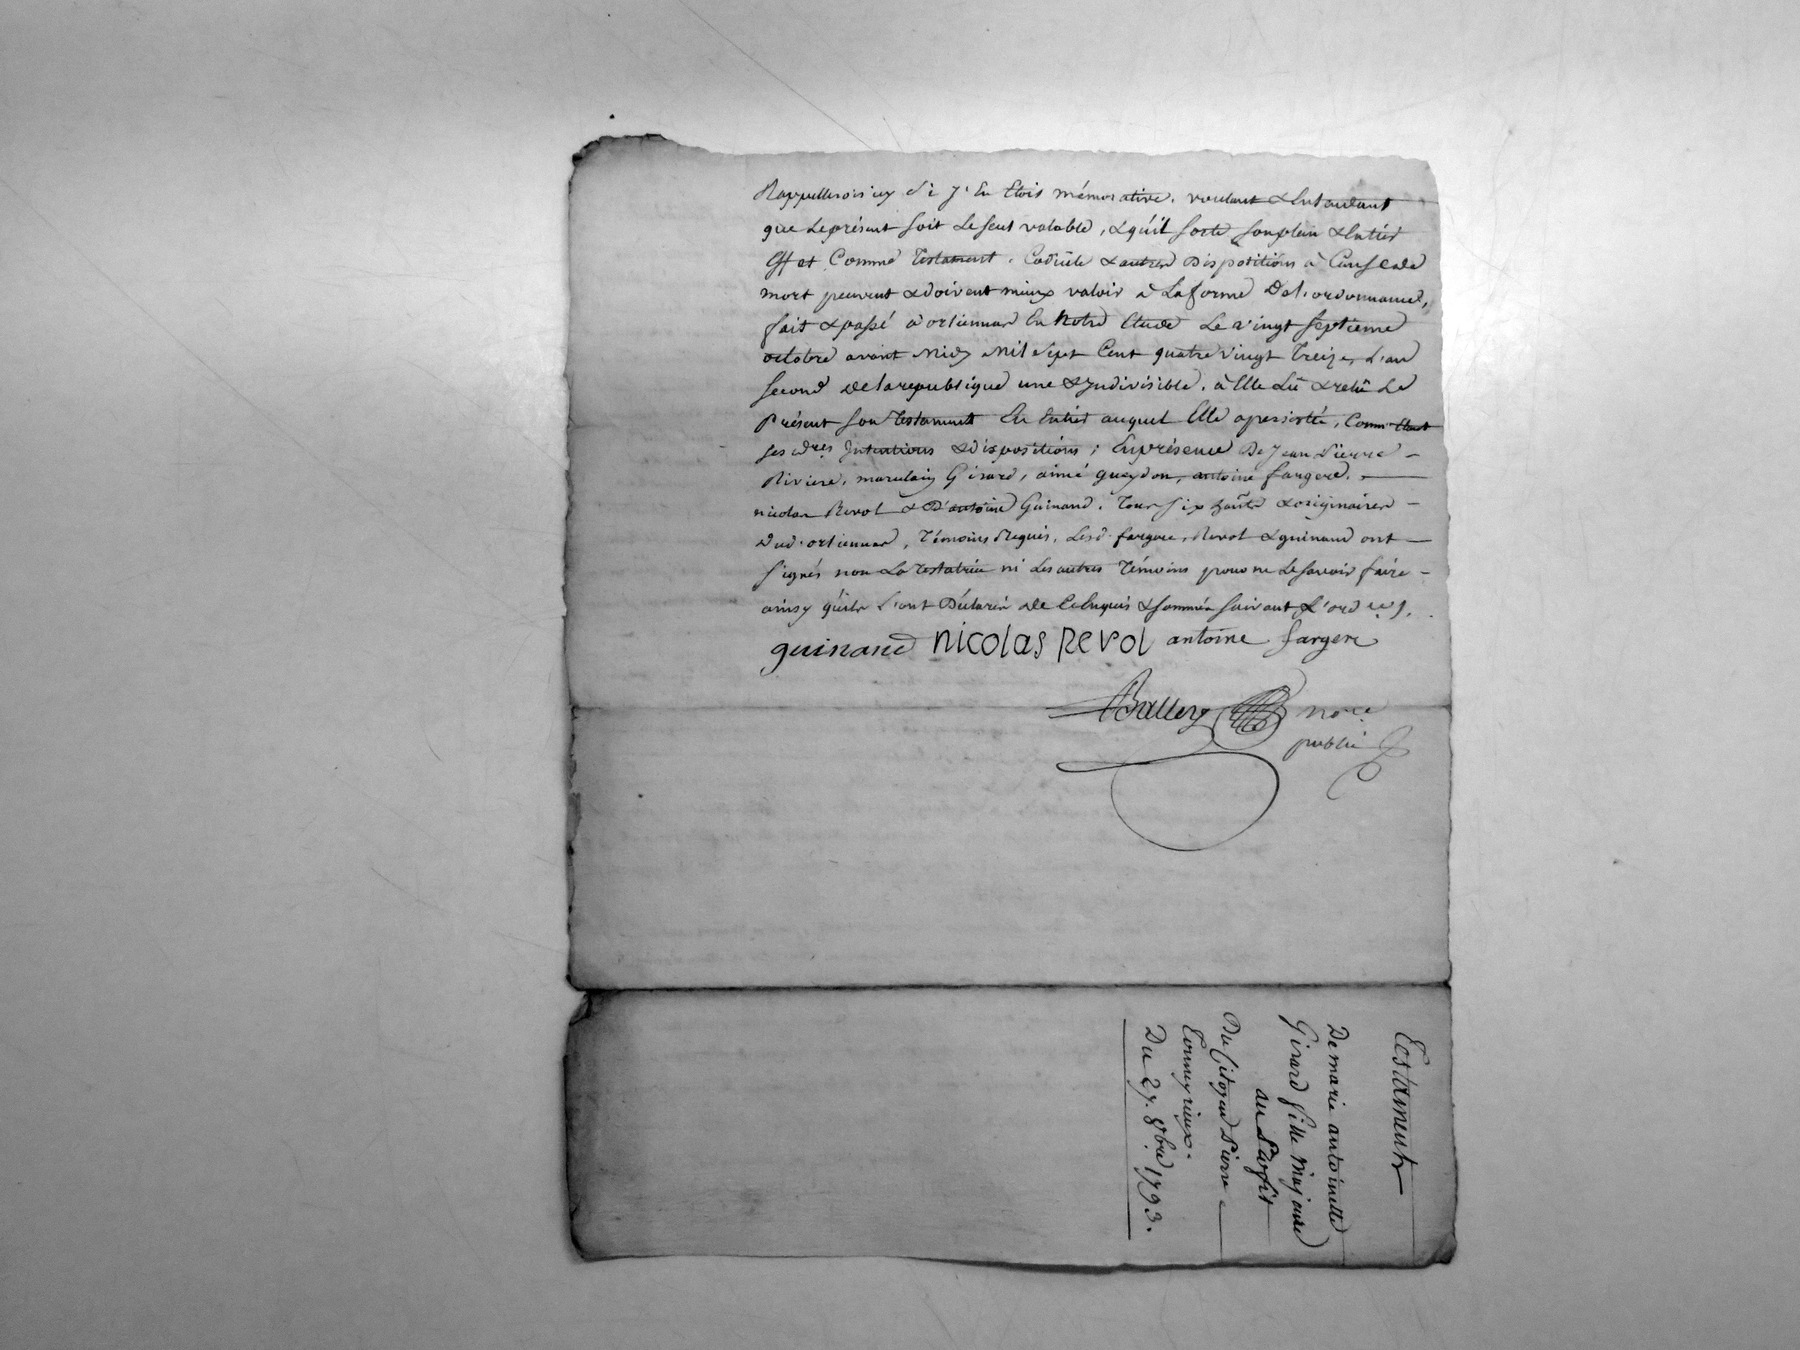 Rappellerois icy Si J'En Etois mémorative. voulant & Entendant
que Leprésent soit Le seul valable, & qu'il sorte sonplein & Entier
Effet Comme Testament. Codicile & autres Dispositions à Cause de
mort peuvent & doivent mieux valoir à La forme Del'ordonnance,
fait & passé à orliennas En Notre Etude Le vingt septieme
octobre avant Midy Mil Sept Cent quatre vingt Treize, L'an
second dela republique une & Indivisible. à Elle Lû & relû Le
Présent son Testament En Entier auquel Elle a persisté, Comm'Etant
ses dres Intentions & dispositions; En présence De Jean Pierre
Riviere, Girard, aimé gueydon, antoine fargere,
nicolas Revol & D'antoine Guinand. Tous six & originaires
dud. orliennas, Témoins Requis, Lesd. fargere, Revol & guinand ont
signés non La Testatrice ni Les autres Témoins pour ne Le savoir faire
ainsy qu'ils L'ont Déclaré de Ce Enquis & sommés suivant L'ord ce ).
guinand nicolas Revol antoine fargere
no re
public
Testament
De marie antoinette
Girard fille Majeure
au Profit
Du Citoyen Pierre
Du 27. 8bre 1793.